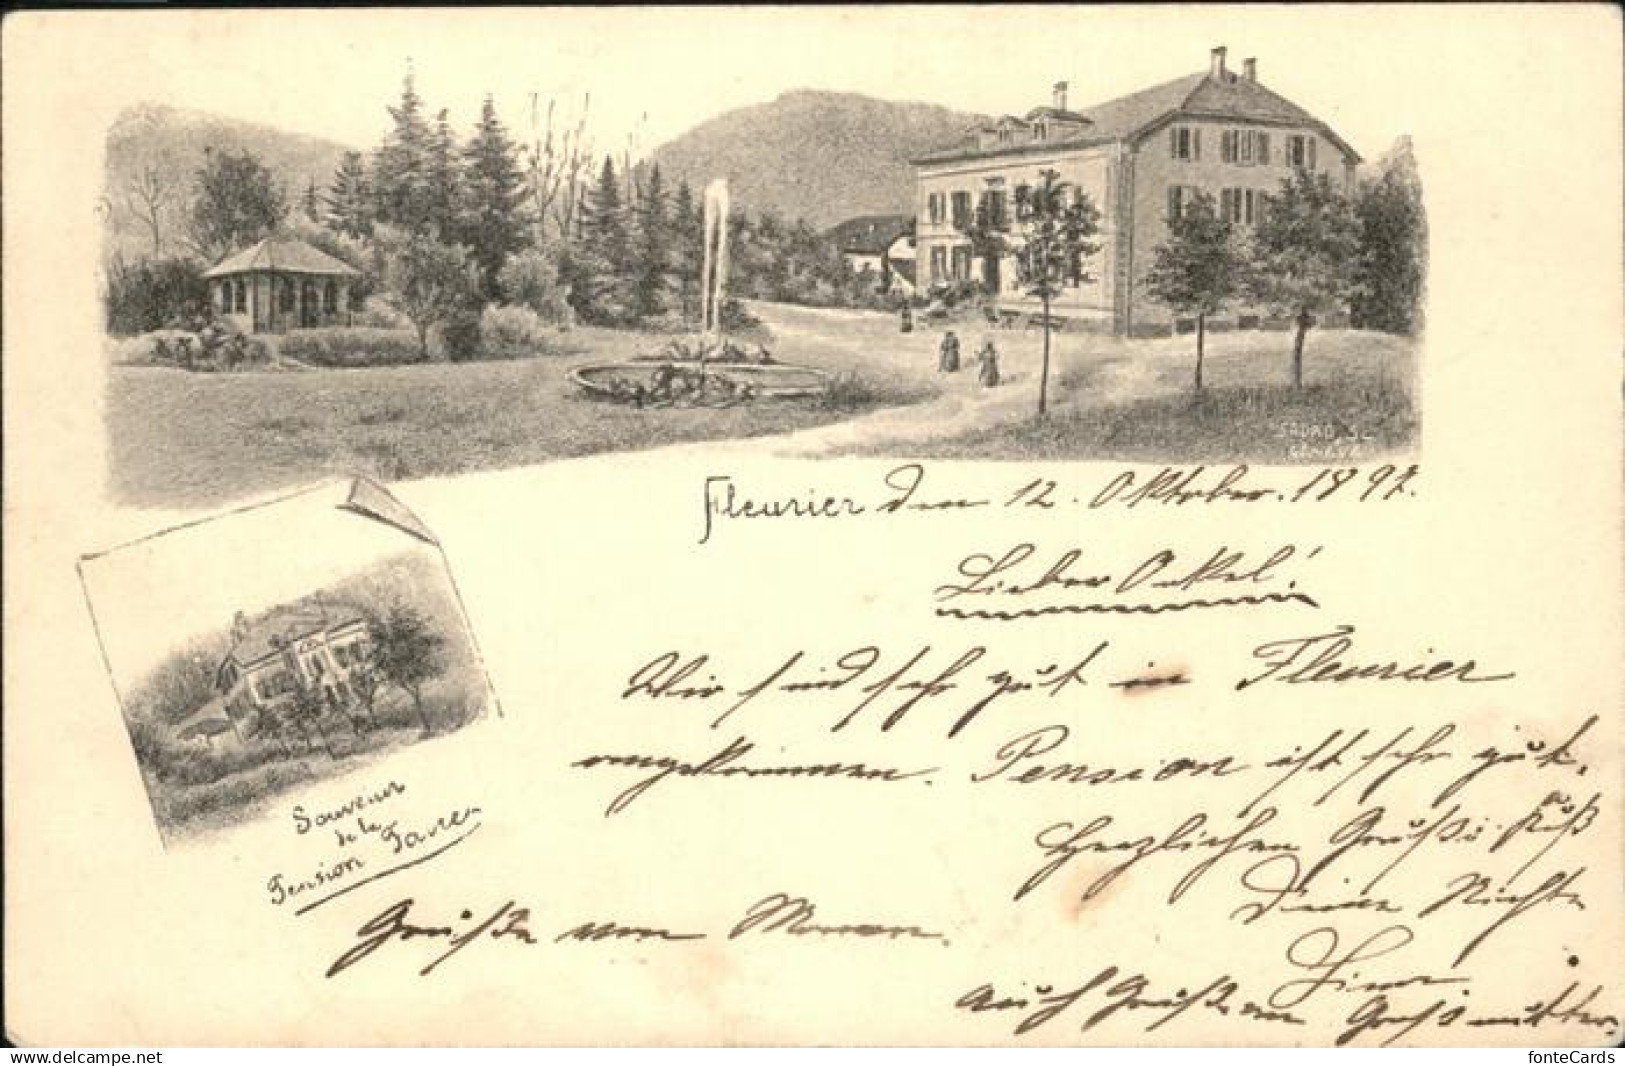 Fleurier den 12. Oktober. 1897.
Lieber Onkel!
Wir sind sehr gut in Fleurier
angekommen. Pension ist sehr gut.
Herzlichen Gruß u. Kuß
Deine Nichte
Grüße von
auch Grüße an Großmutter.
Souvenir
de la
Pension
SADAG SC
GENEVE
www.delcampe.net
fonteCards